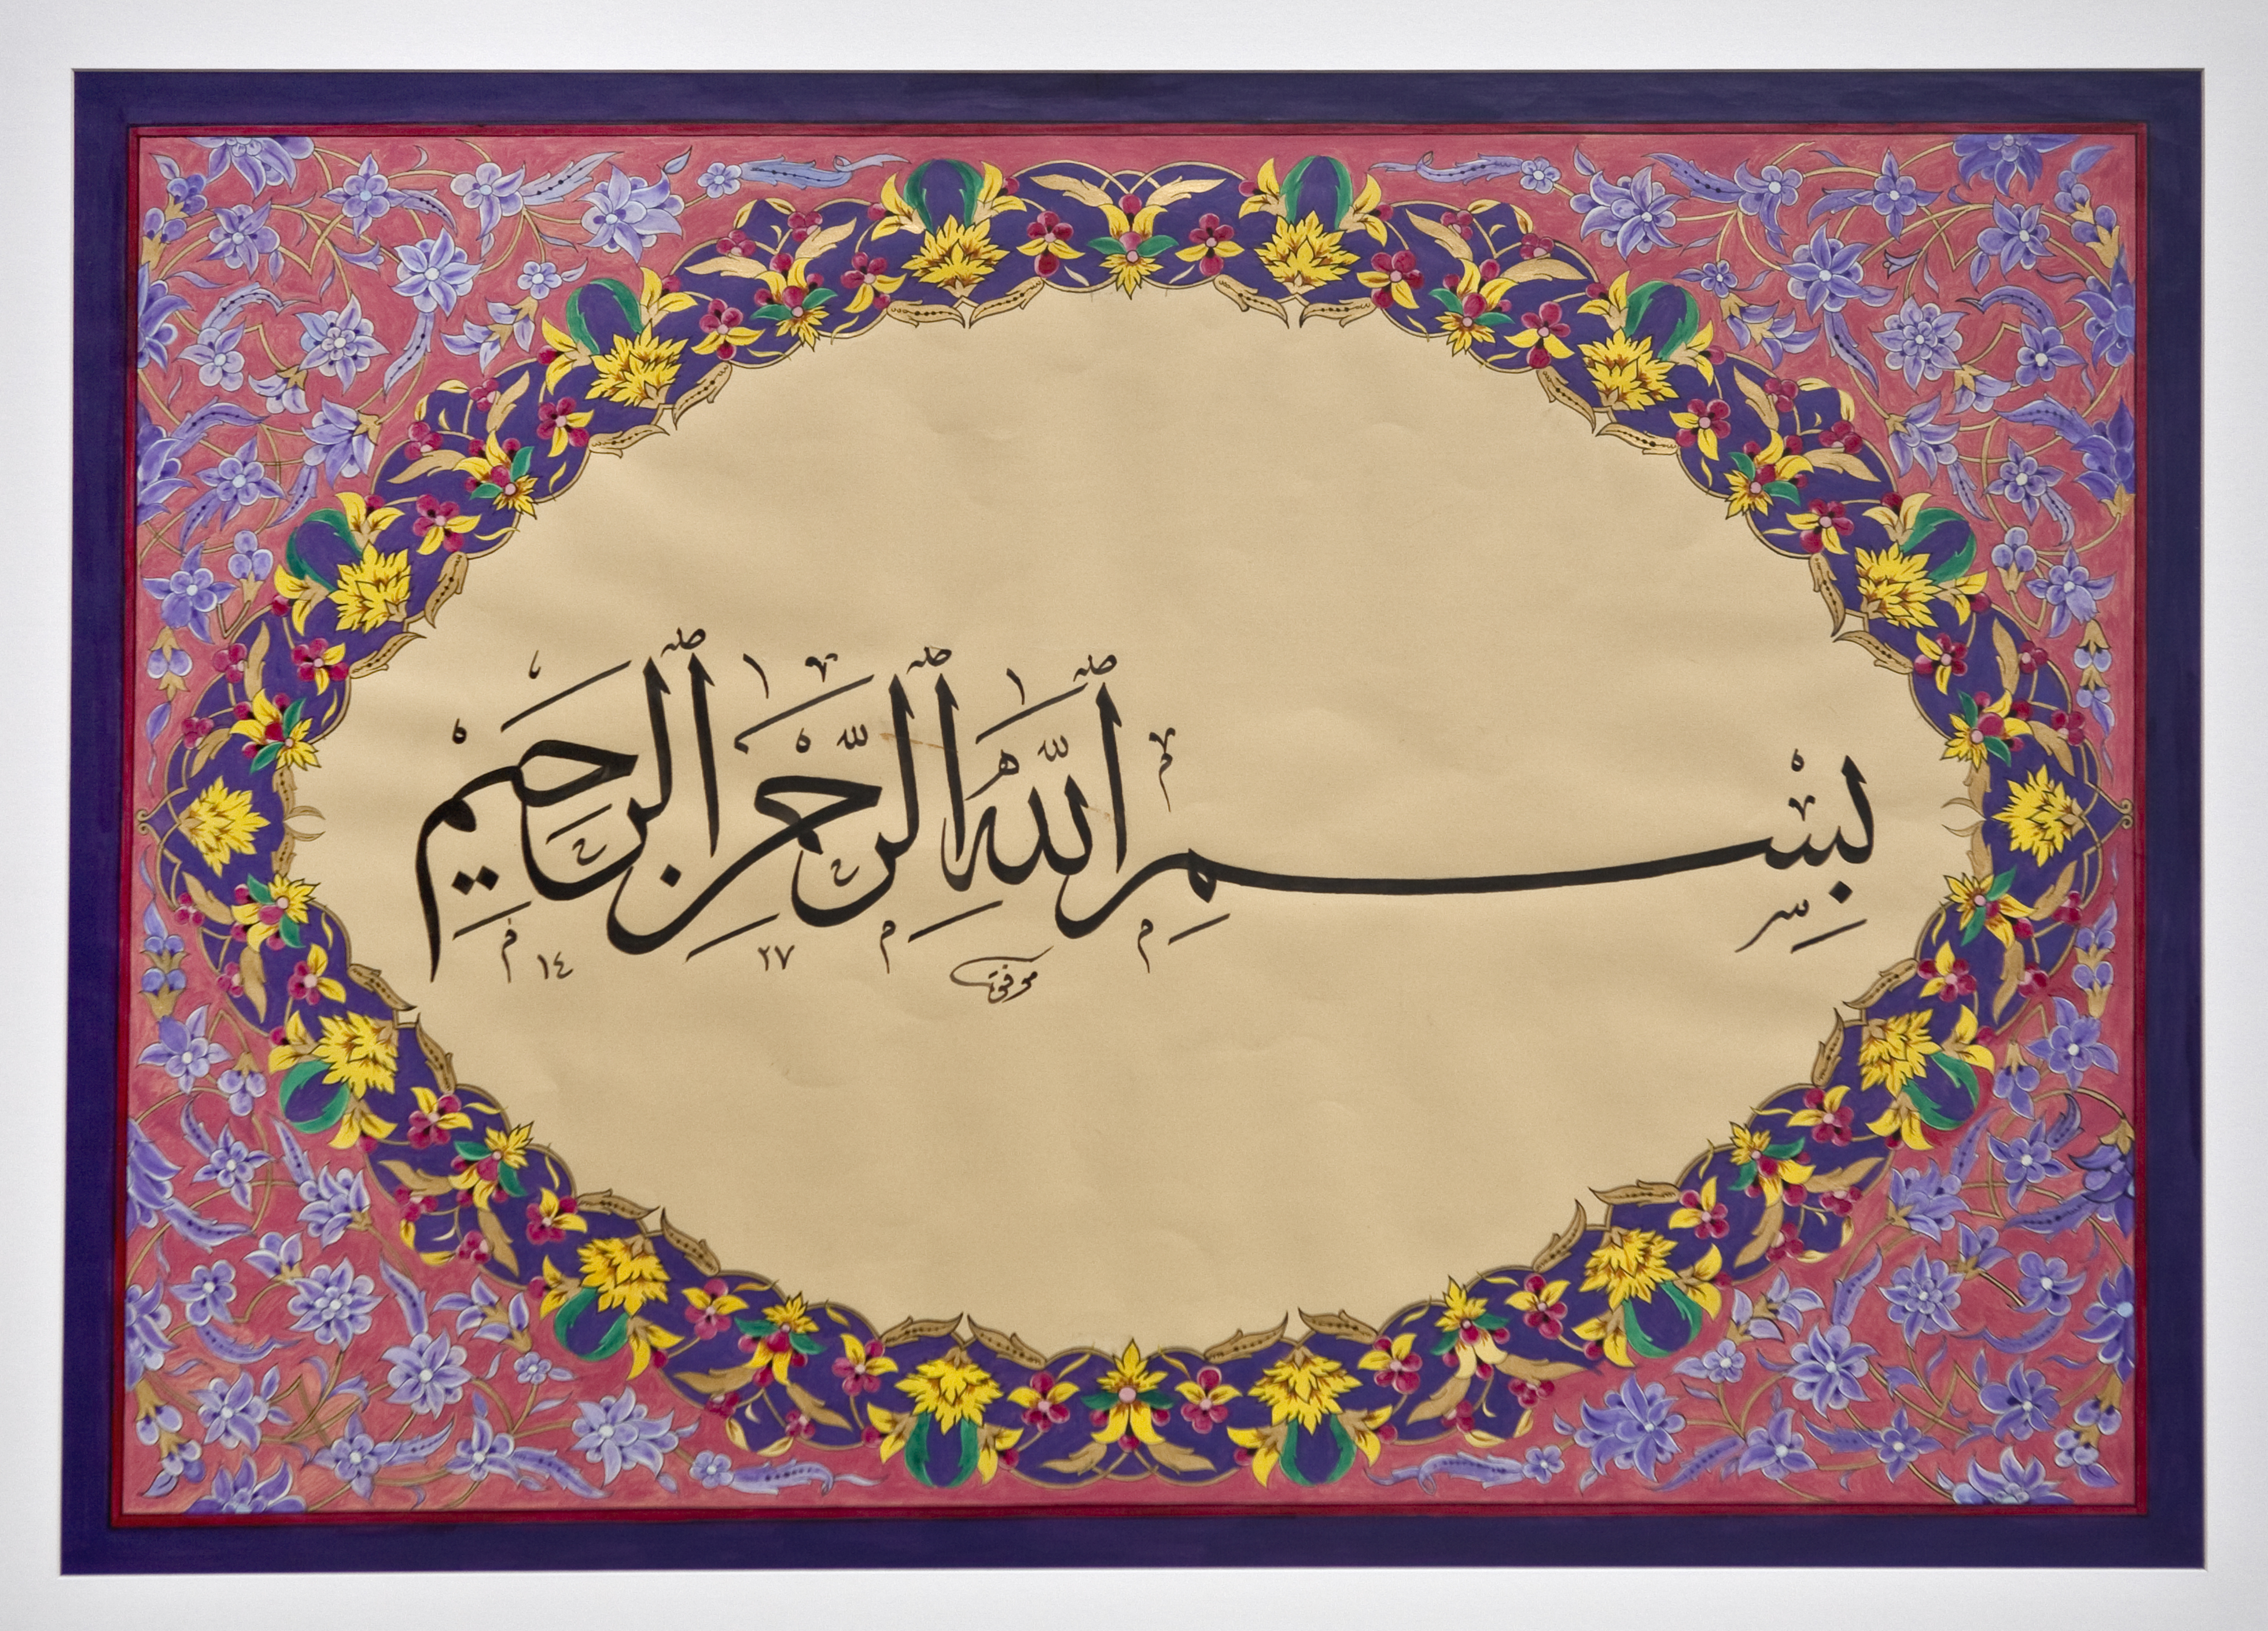 بِسْمِ ٱللَّهِ ٱلرَّحْمَٰنِ ٱلرَّحِيمِ
موفق ٢٧ ١٤